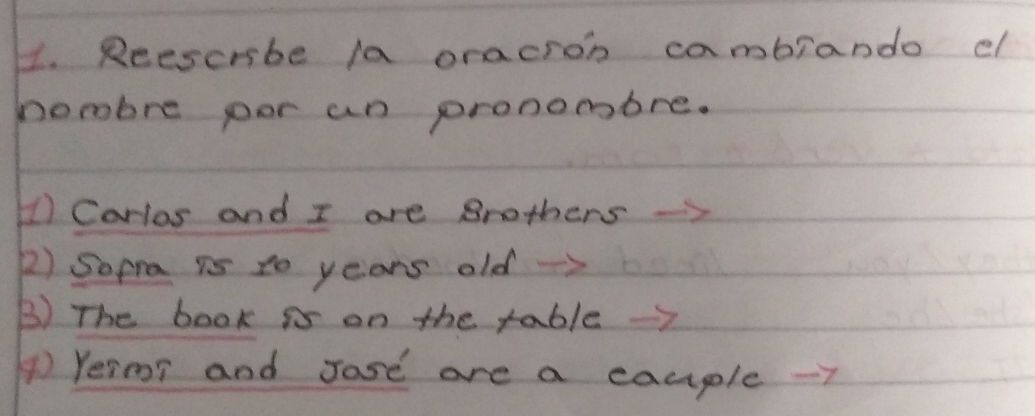 1. Reescribe la oración cambiando el
nombre por un pronombre.
1) Carlos and I are Brothers →
2) Sofia is 20 years old →
3) The book is on the table →
4) Yeimi and José are a cauple →